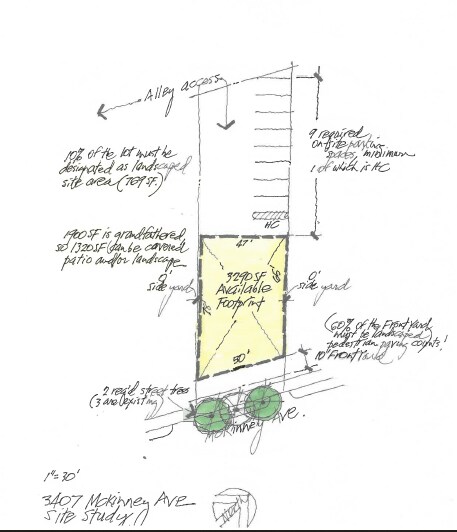 Alley access
10% of the lot must be
designated as landscaped
site area (709 SF.)
9 required
on-site parking
spaces, minimum
1 of which is HC
HC
1900 SF is grandfathered
so 1320 SF can be covered
patio and/or landscape
47'
0'
side yard
3290 SF
Available
Footprint
0'
side yard
50'
(60% of the Front Yard
must be landscaped,
pedestrian paving counts!
10' Front Yard
2 req'd street trees
(3 are existing)
McKinney Ave.
1"=30'
3407 McKinney Ave
Site Study